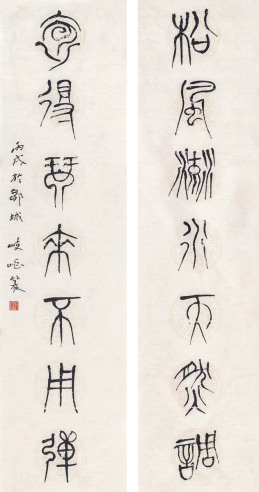 松風澗水天然調
抱得琴來不用彈
丙戌於鄒城篆